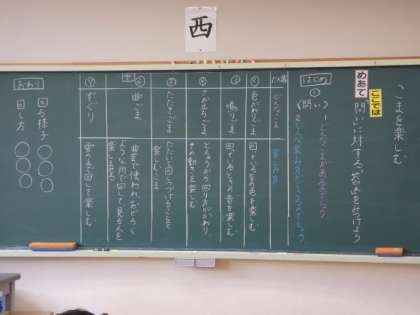 西
こまを楽しむ
ここでは
めあて
問いに対する答えを見つけよう
はじめ
①
(問い)
どんなこま
楽しみ方
②
色がわりごま
回っているときの色を楽しむ
③
鳴りごま
回っているときの音を楽しむ
④
さか立ちごま
とちゅうから回り方がかわり
その動きを楽しむ
⑤
たたきごま
たたいて回しつづけることを
楽しむ
中
⑥
曲ごま
曲芸で使われ、おどろく
ような所で回して見る人を
楽しませる
⑦
ずぐり
雪の上で回して楽しむ
おわり
回る様子
回し方